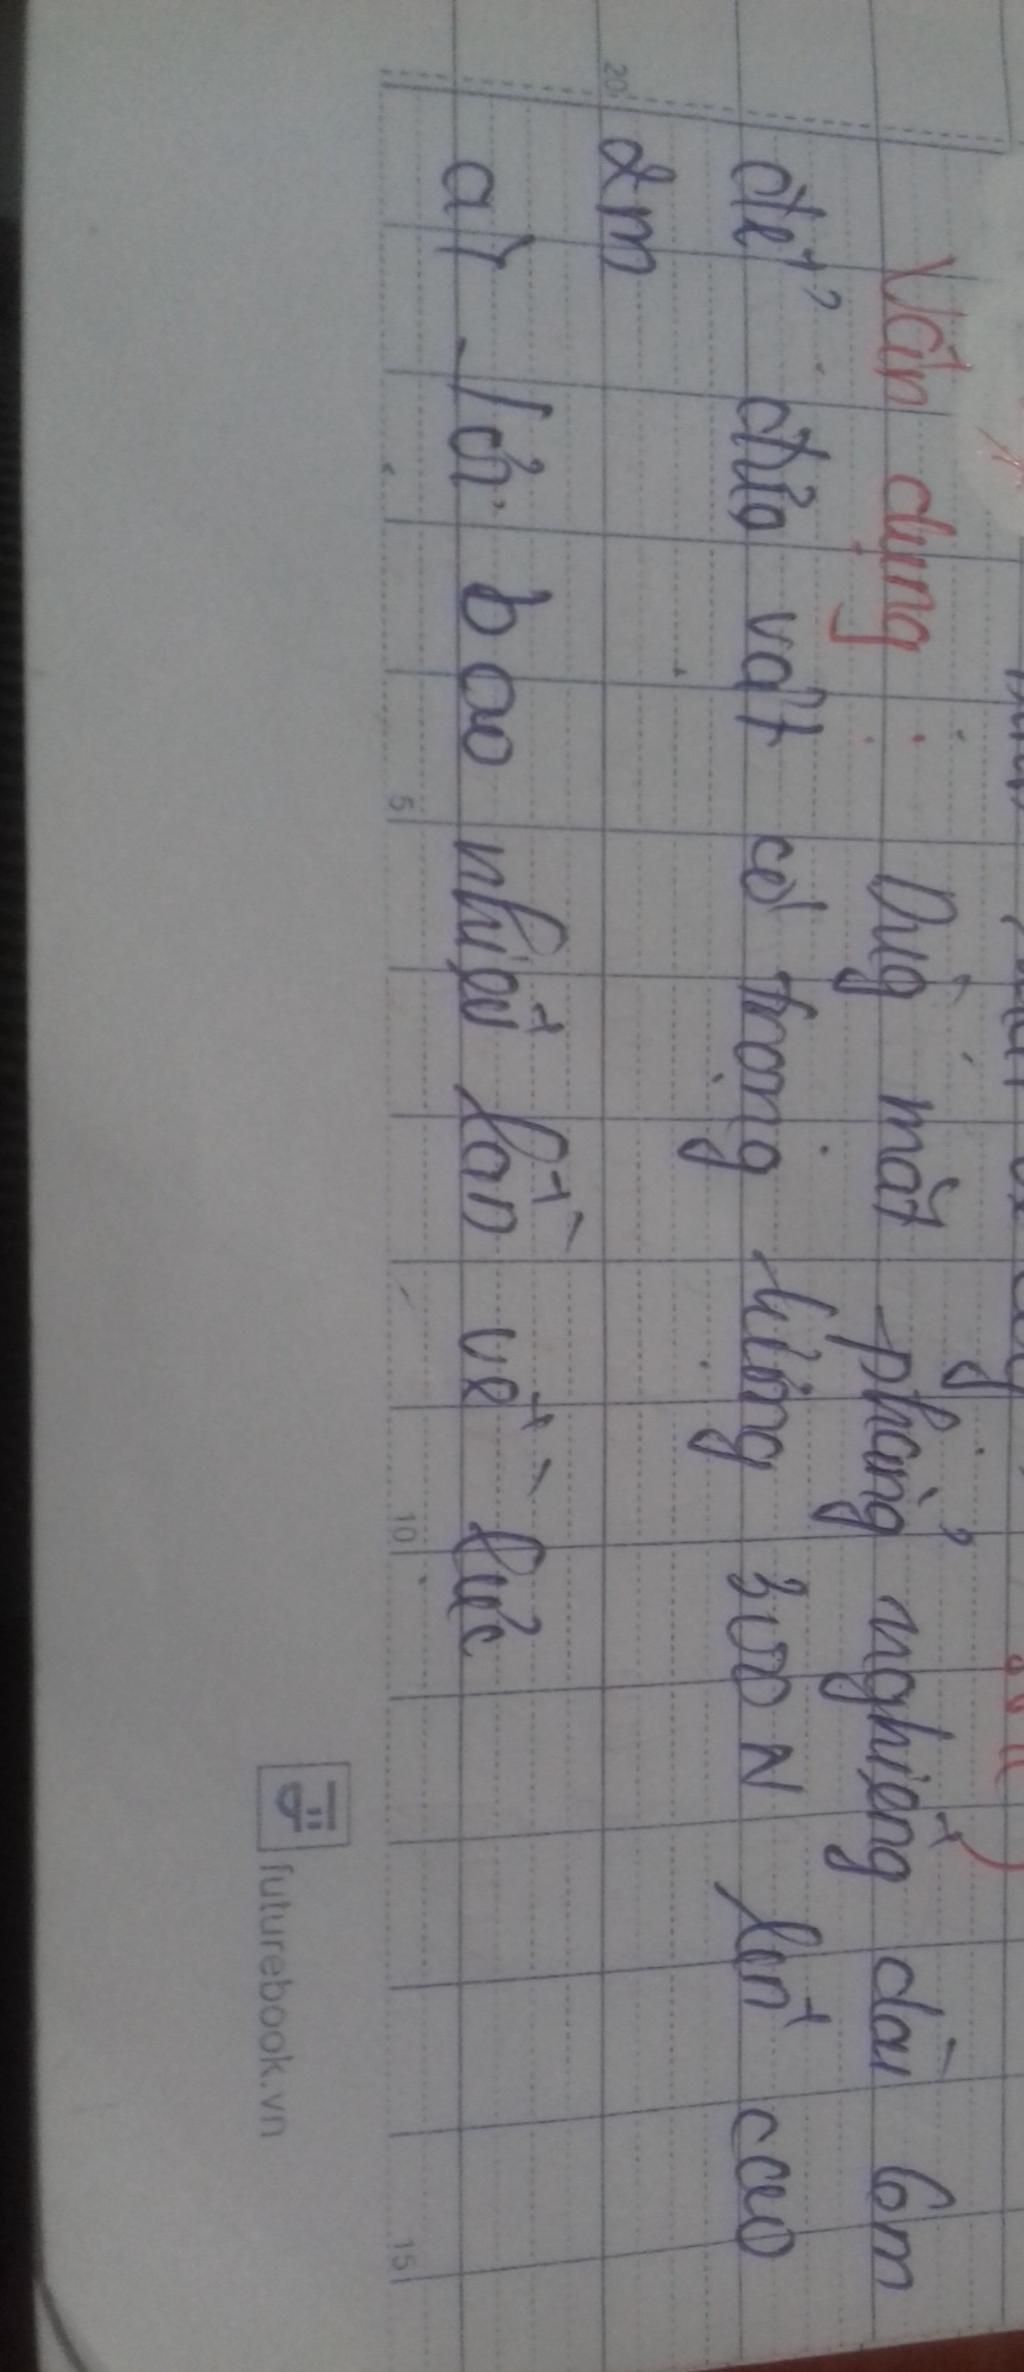 Vận dụng : Dùng mặt phẳng nghiêng dài 6m
để đưa vật có trọng lượng 300 N lên cao
2m
a) lợi bao nhiêu lần về lực
20
5
10
15
futurebook.vn